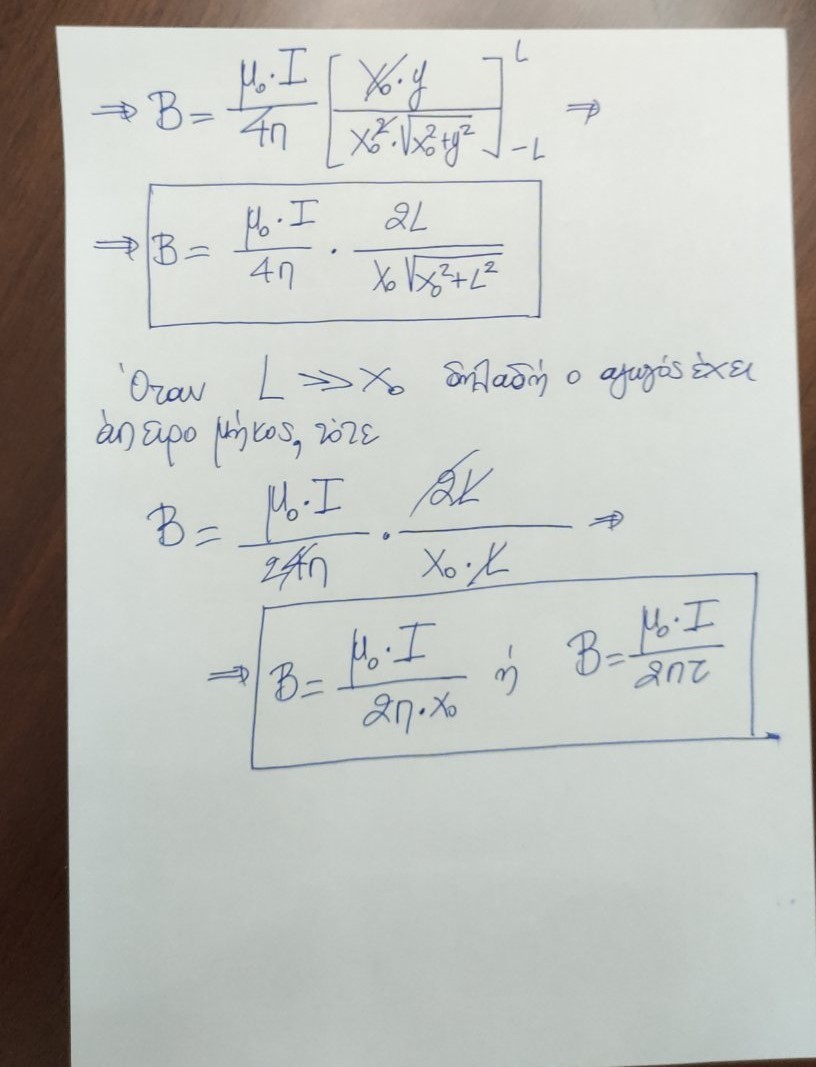 ⇒ B = μ₀·I / 4π [ x₀·y / x₀²·√(x₀²+y²) ]₋ʟᴸ ⇒
⇒ B = μ₀·I / 4π · 2L / x₀√(x₀²+L²)
Όταν L ≫ x₀ δηλαδή ο αγωγός έχει
άπειρο μήκος, τότε
B = μ₀·I / 24π · 2L / x₀·L ⇒
⇒ B = μ₀·I / 2π·x₀ ή B = μ₀·I / 2πr